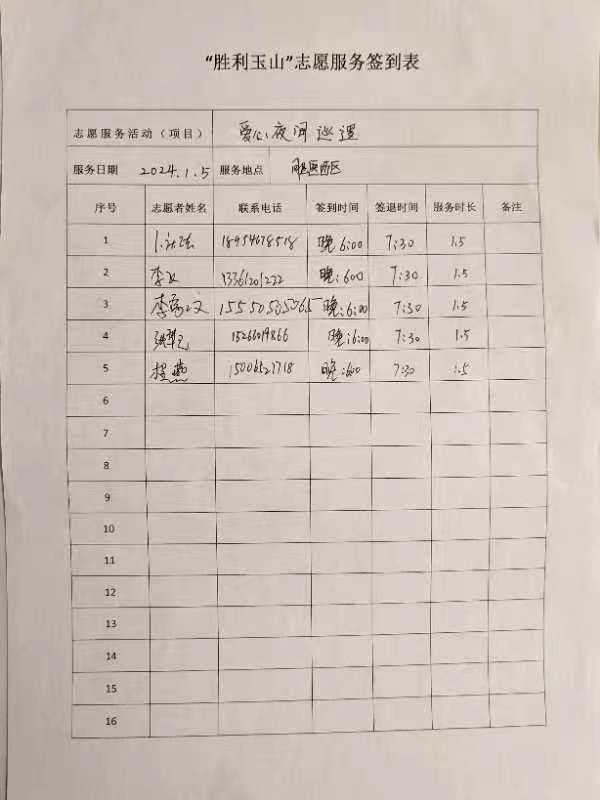 “胜利玉山”志愿服务签到表
志愿服务活动（项目） 爱心夜间巡逻
服务日期 2024.1.5 服务地点
序号 志愿者姓名 联系电话 签到时间 签退时间 服务时长 备注
1 18954678518 晚6:00 7:30 1.5
2 13361201222 晚:600 7:30 1.5
3 晚:6:00 7:30 1.5
4 晚:6:00 7:30 1.5
5 程燕 15006521718 晚:600 7:30 1.5
6
7
8
9
10
11
12
13
14
15
16